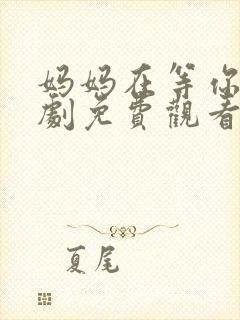 妈妈在等你
劇免費觀看
夏尾